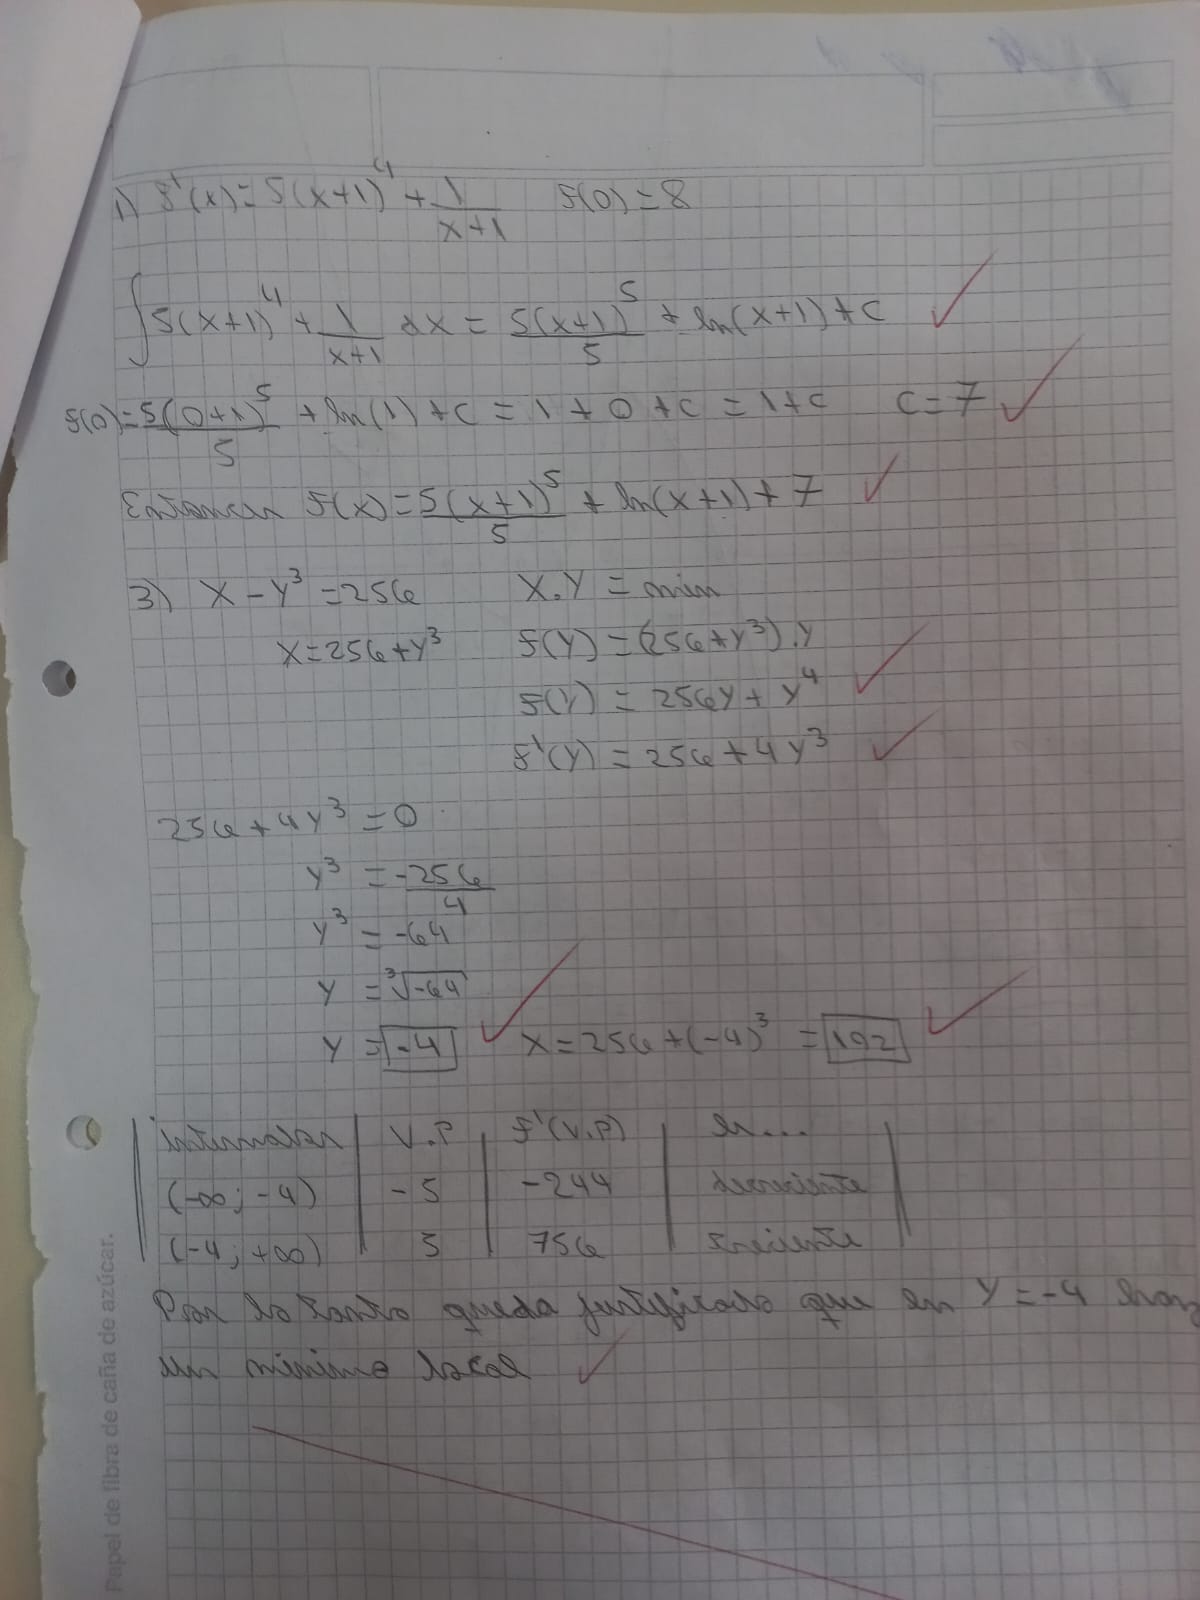 1) f'(x)=5(x+1)^4+1/(x+1) f(0)=8
∫5(x+1)^4+1/(x+1) dx = 5(x+1)^5/5 + ln(x+1)+c
f(0)=5(0+1)^5/5 + ln(1)+c = 1+0+c = 1+c c=7
Entonces f(x)=5(x+1)^5/5 + ln(x+1)+7
3) x-y³=256 x.y=min
x=256+y³ f(y)=(256+y³).y
f(y)=256y+y⁴
f'(y)=256+4y³
256+4y³=0
y³=-256/4
y³=-64
y=∛-64
y=-4 x=256+(-4)³=192
intervalos V.P f'(V.P) es...
(-∞;-4) -5 -244 decreciente
(-4;+∞) 5 756 creciente
Por lo tanto queda justificado que en y=-4 hay
un mínimo local
Papel de fibra de caña de azúcar.